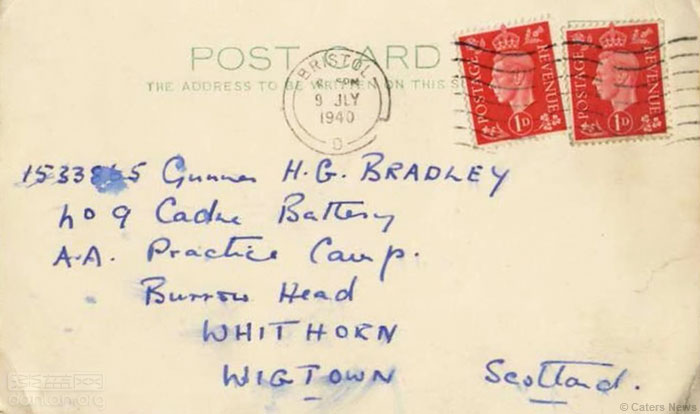 POST CARD
THE ADDRESS TO BE WRITTEN ON THIS
BRISTOL
PM
9 JLY
1940
POSTAGE REVENUE 1D
POSTAGE REVENUE 1D
Gunner H.G. BRADLEY
No 9 Cadre Battery
A.A. Practice Camp.
Burrow Head
WHITHORN
WIGTOWN Scotland.
© Caters News